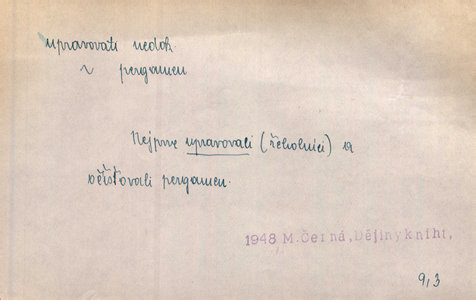 upravovati nedok.
~ pergamen
Nejprve upravovali (řeholníci) a
očišťovali pergamen.
1948 M. Černá, Dějiny kniht,
9,3